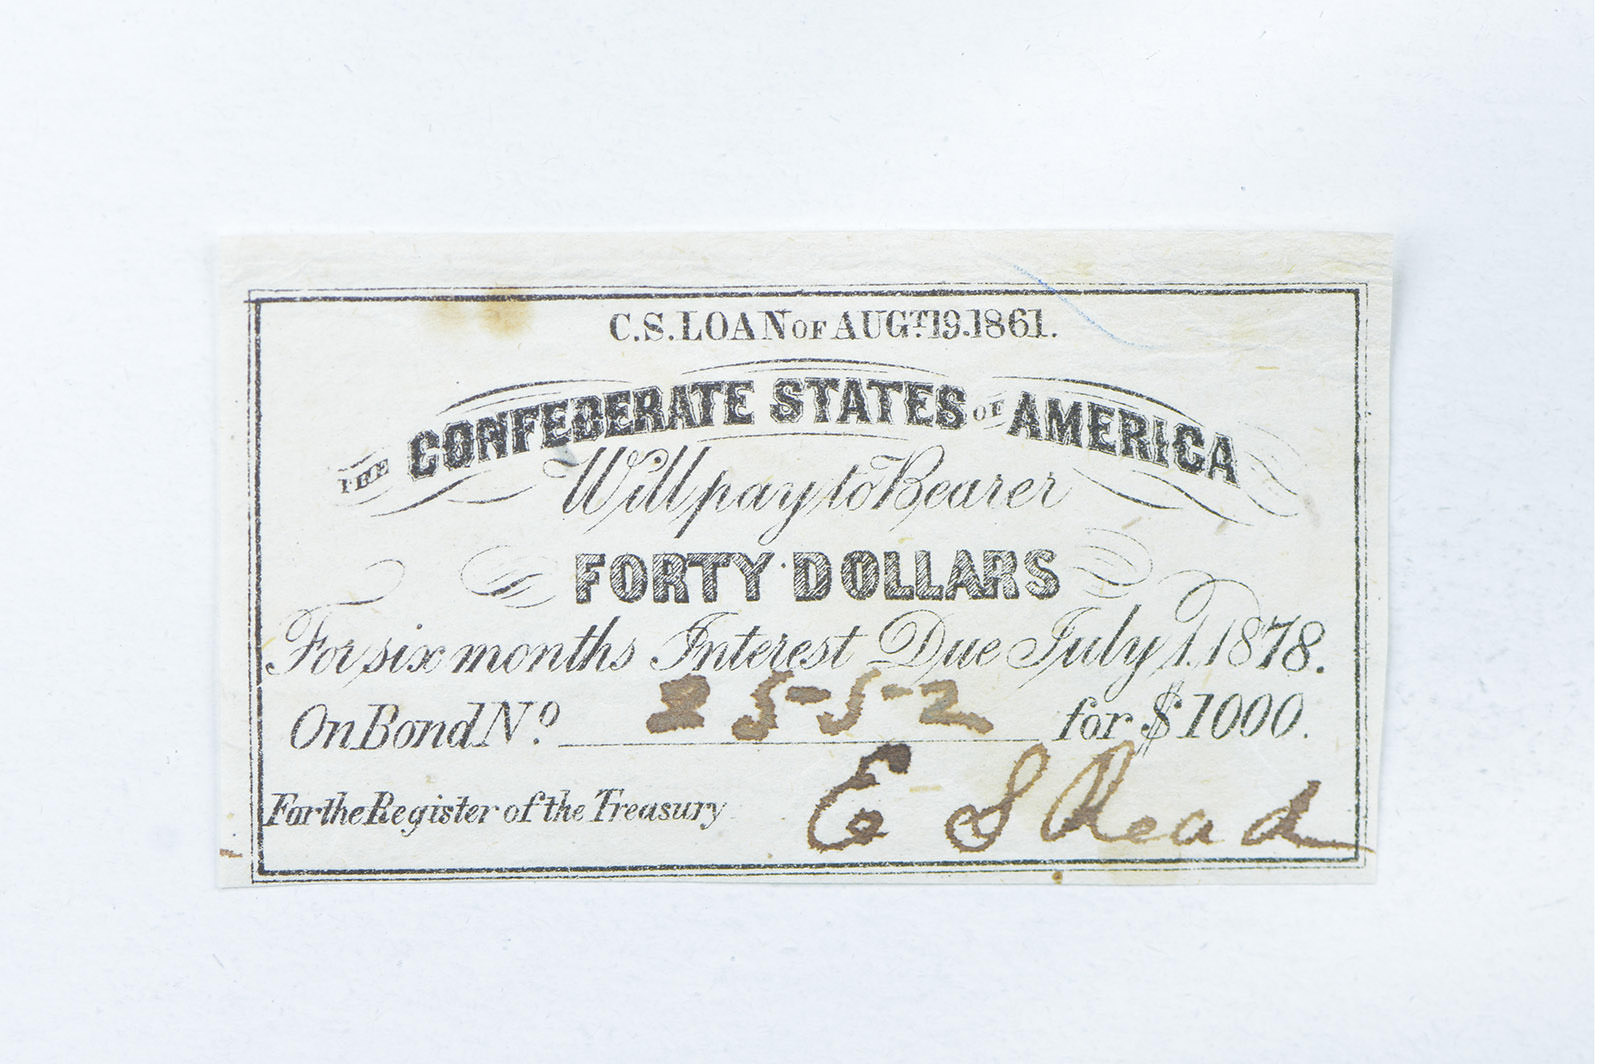 C.S. LOAN OF AUGT. 19. 1861.
THE CONFEDERATE STATES OF AMERICA
Will pay to Bearer
FORTY DOLLARS
For six months Interest Due July 1. 1878.
On Bond No. 2552 for $1000.
For the Register of the Treasury E S Read